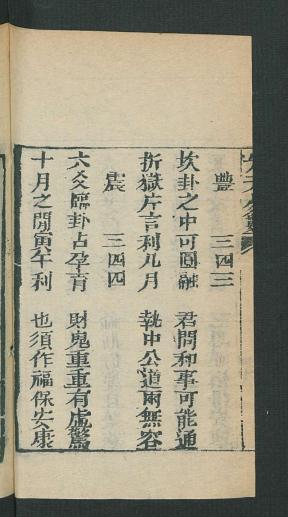 豐 三四三
坎卦之中可圓融 君問和事可能通
折獄片言利几月 執中公道兩無容
震 三四四
六爻臨卦占孕育 財鬼重重有虛驚
十月之間寅午利 也須作福保安康